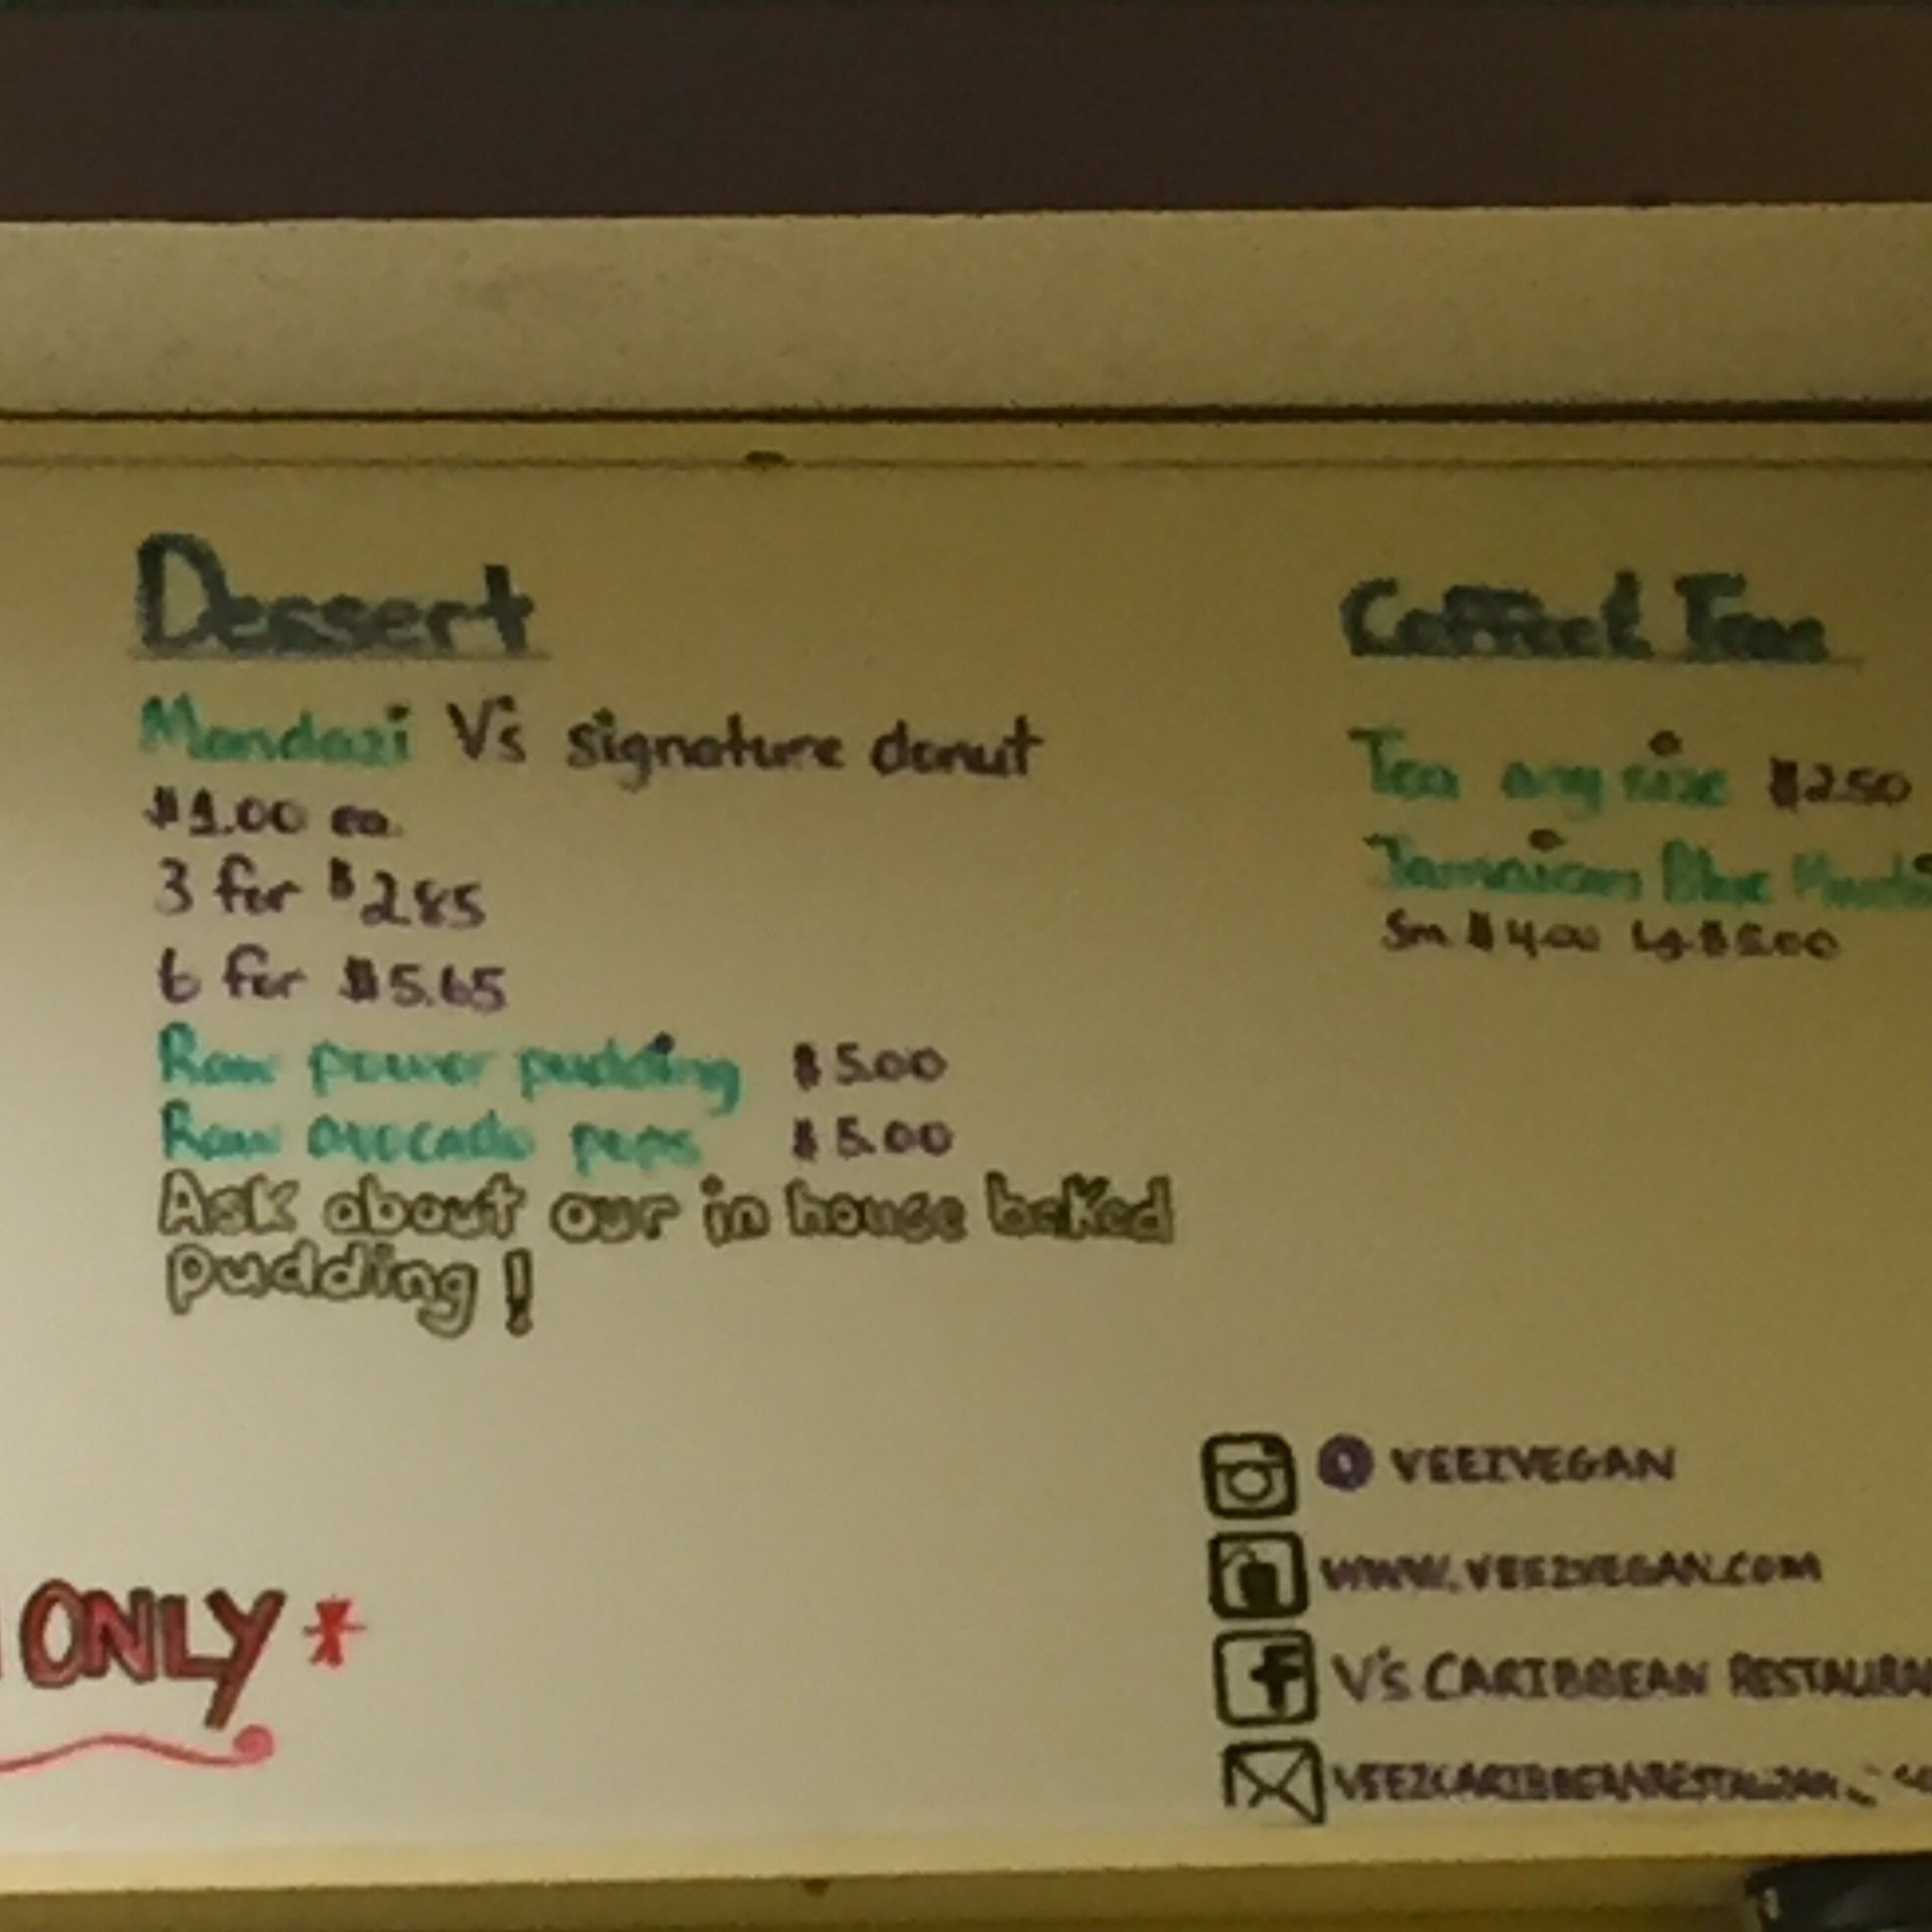 Dessert
Mandazi V's signature donut
$1.00 ea.
3 for $2.85
6 for $5.65
Raw power pudding $5.00
Raw avocado pups $5.00
Ask about our in house baked
pudding!
Coffee & Tea
Tea any size $2.50
Jamaican Blue
Sm $4.00 Lg $5.00
ONLY*
@ VEEZVEGAN
WWW.VEEZVEGAN.COM
V's CARIBBEAN RESTAURAN